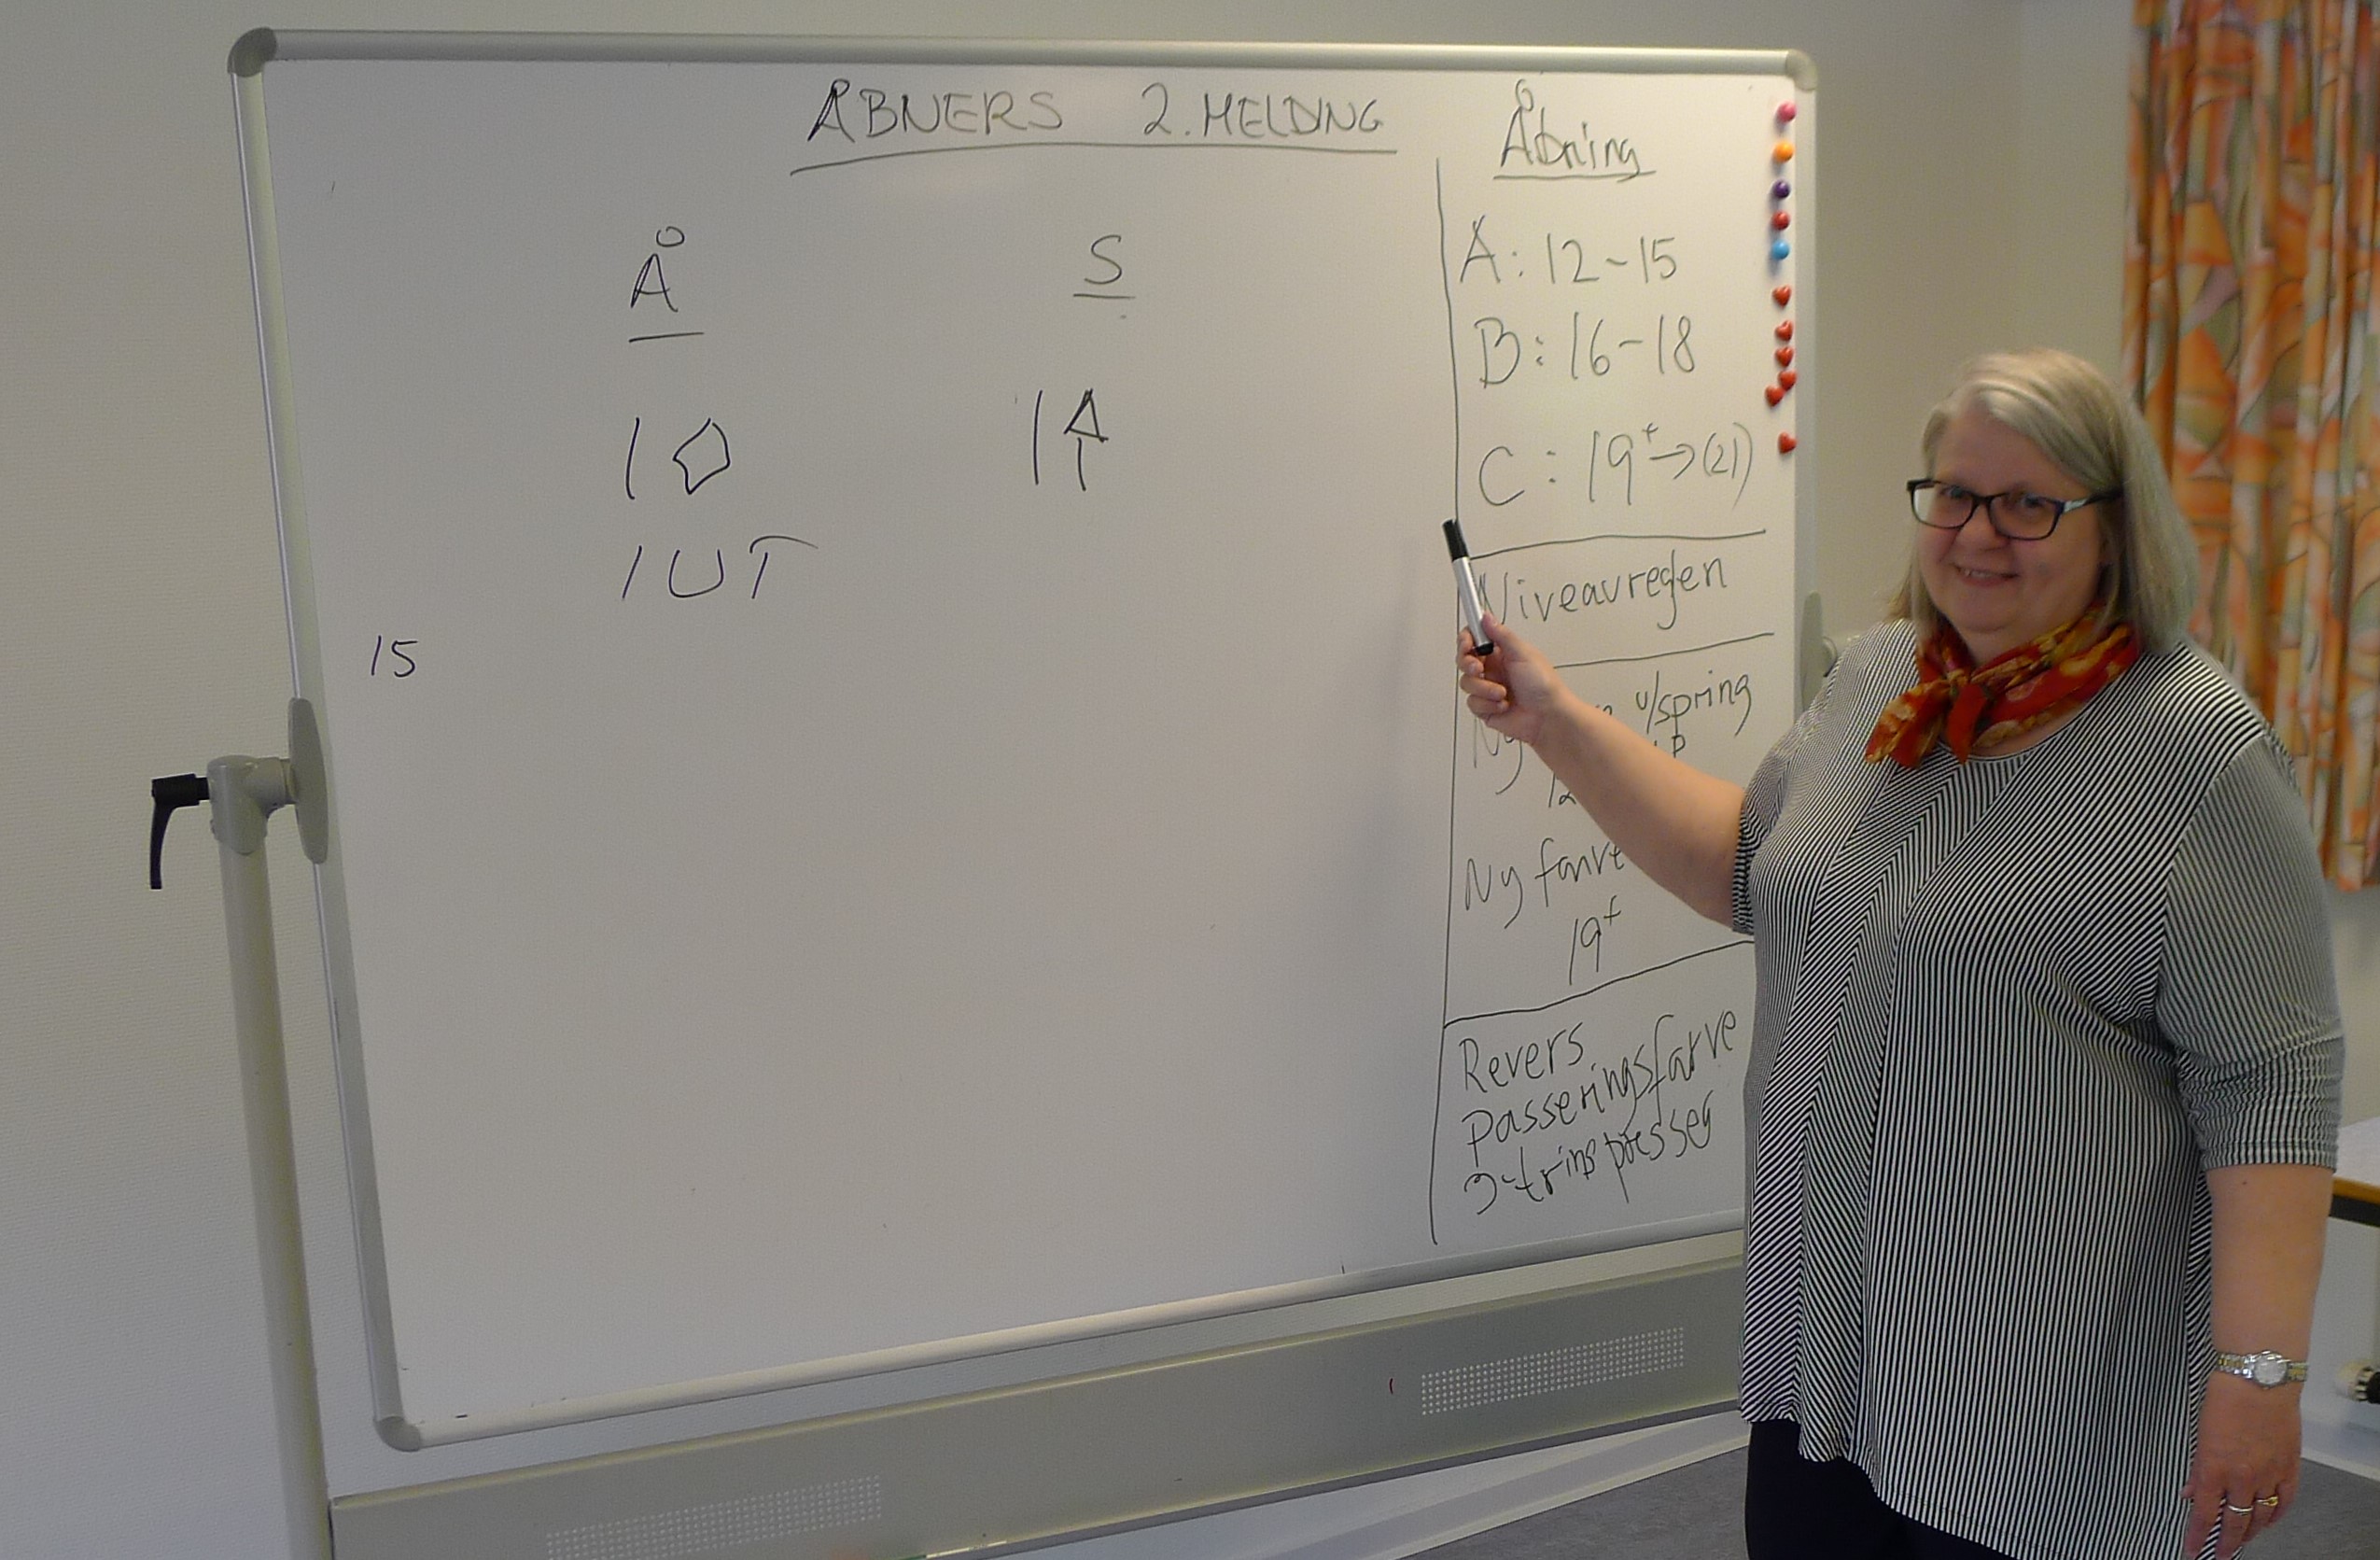 ÅBNERS 2. MELDING
Å S
1♢ 1♤
1UT
15
Åbning
A: 12-15
B: 16-18
C: 19+→(21)
Niveaureglen
Ny u/spring
Ny farve
19+
Revers
passeringsfarve
3-trins